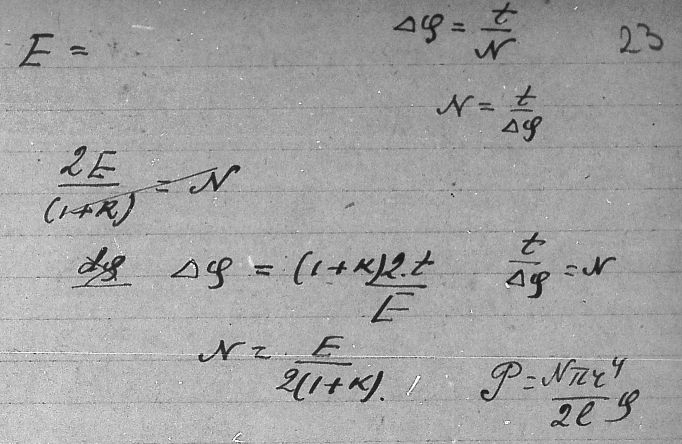 E =
Δφ = t/N
23
N = t/Δφ
2E/(1+k) = N
dφ Δφ = (1+k)2.t/E t/Δφ = N
N = E/2(1+k).
P = Nπr⁴/2l φ